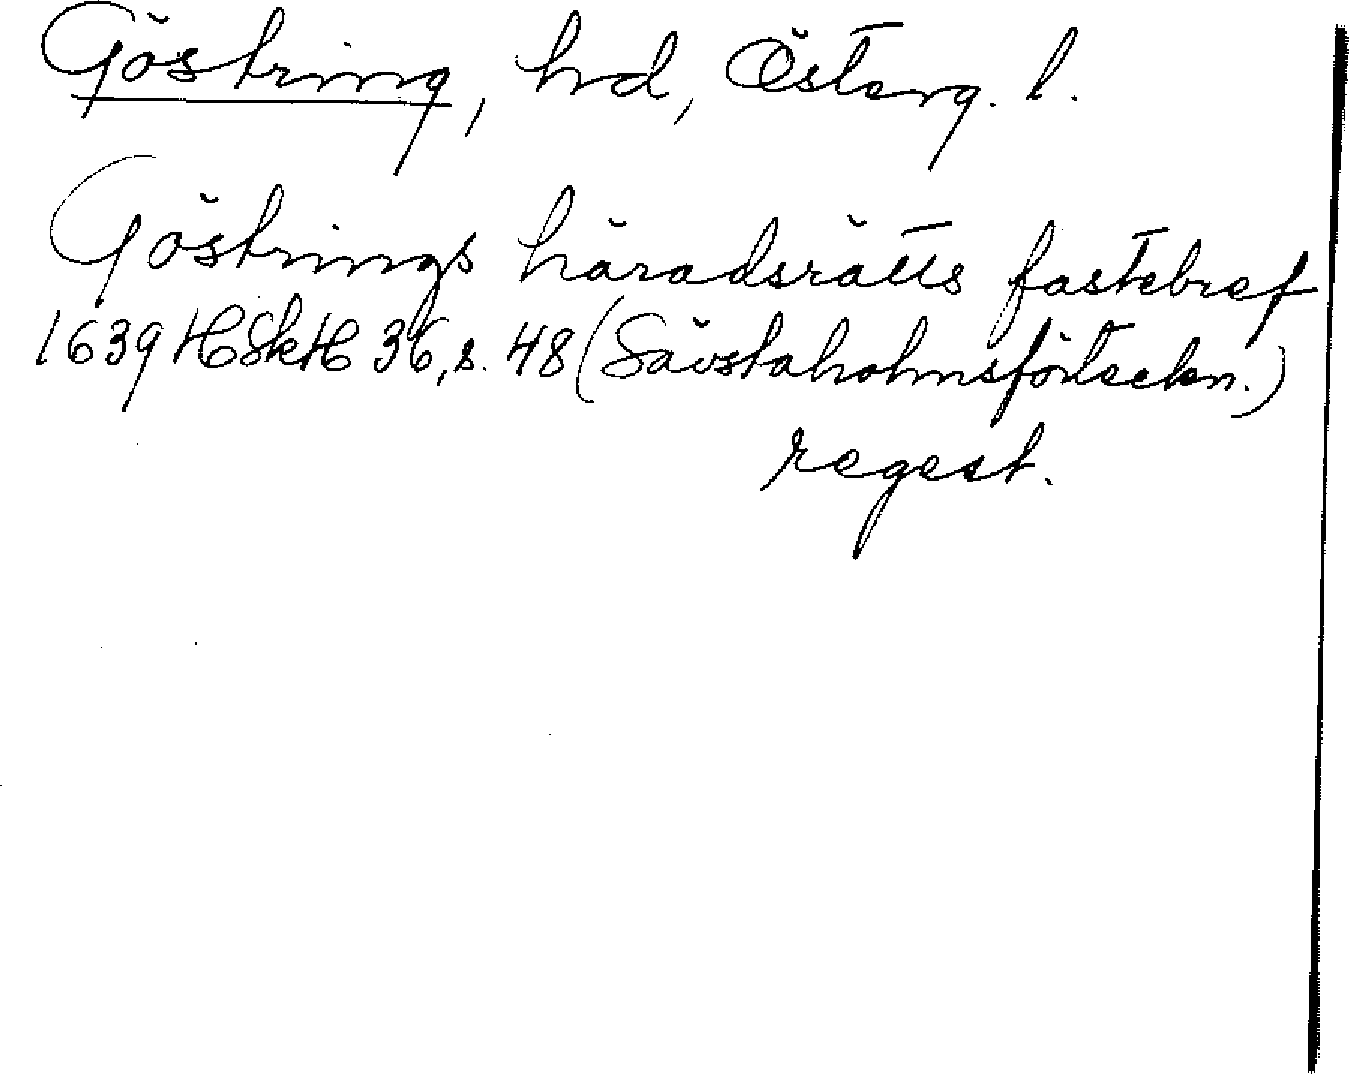 Göstring, hd, Österg. l.
Göstrings häradsrätts fastebref
1639 HSkH 36, s. 48 (Sävstaholmsförteckn.)
regest.